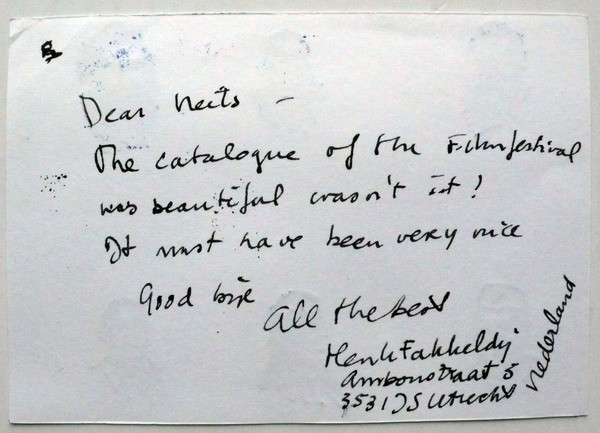 Dear Neits -
The catalogue of the Filmfestival
was beautiful wasn't it!
It must have been very nice
Good bye
All the best
Henk Fakkeldij
Ambonstraat 5
3531 JS Utrecht
Nederland